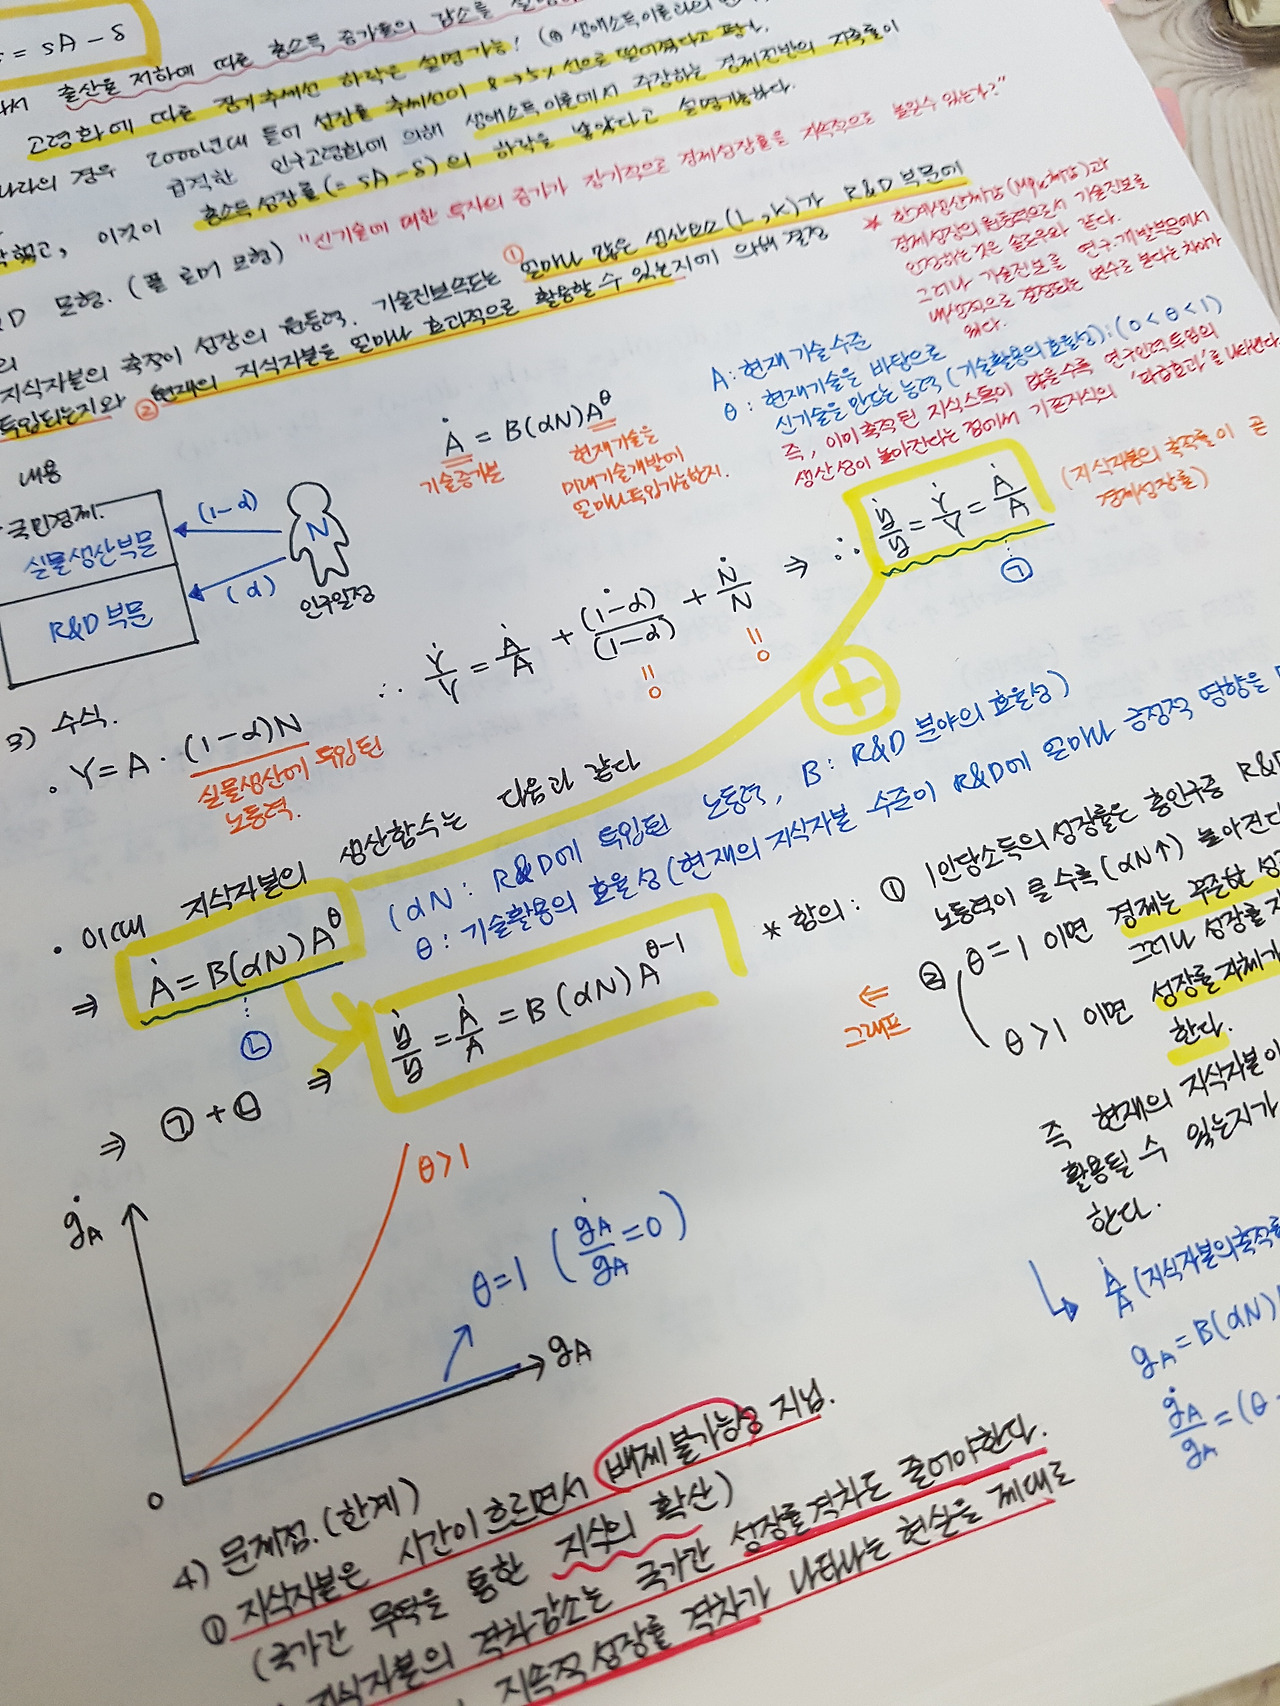 = sA - δ
출산율 저하에 따른 총소득 증가율의 감소를
고령화에 따른 장기추세선 하락은 설명가능! (⊕ 생애소득이론
나라의 경우 2000년대 들어 성장률 추세선이 8→5% 선으로 떨어졌다고 팜.
급격한 인구고령화에 의해 생애소득이론에서 주장하는 경제전반의 저축률이
했고, 이것이 총소득성장률(= sA - δ)의 하락을 낳았다고 설명가능하다.
모형. (폴 로머 모형) "신기술에 대한 투자의 증가가 장기적으로 경제성장률을 지속적으로 높일수 있는가?"
지식자본의 축적이 성장의 원동력. 기술진보속도는 ① 얼마나 많은 생산요소(L, K)가 R&D 부문에
투입되는지와 ② 현재의 지식자본을 얼마나 효과적으로 활용할 수 있는지에 의해 결정
* 한계생산체감(MPk체감)과
경제성장의 원동력으로서 기술진보를
인정하는 것은 솔로우와 같다.
그러나 기술진보를 연구·개발부문에서
내생적으로 결정되는 변수로 본다는 차이가
있다.
A : 현재 기술수준
θ : 현재기술을 바탕으로
신기술을 만드는 능력 (기술활용의 효율성) : (0 < θ < 1)
즉, 이미 축적된 지식스톡이 많을수록 연구인력 투입의
생산성이 높아진다는 점에서 기존지식의 '파급효과'를 나타낸다.
Ȧ = B(αN)A^θ
기술증가분
현재기술을
미래기술개발에
얼마나 투입가능한지.
내용
국민경제.
실물생산부문
R&D 부문
(1-α)
(α)
N
인구일정
∴ Ẏ/Y = Ȧ/A + (1-̇α)/(1-α) + Ṅ/N ⇒ ∴ ẏ/y = Ẏ/Y = Ȧ/A
"0 "0
㉠
(지식자본의 축적률이 곧
경제성장률)
3) 수식.
· Y = A · (1-α)N
실물생산에 투입된
노동력.
· 이때 지식자본의 생산함수는 다음과 같다
⇒ Ȧ = B(αN)A^θ
㉡
(αN : R&D에 투입된 노동력, B : R&D 분야의 효율성)
θ : 기술활용의 효율성 (현재의 지식자본 수준이 R&D에 얼마나 긍정적 영향을
⇒ ㉠ + ㉡ ⇒ ẏ/y = Ȧ/A = B(αN)A^(θ-1)
* 함의 : ① 1인당소득의 성장률은 총인구중 R&D
노동력이 클 수록 (αN↑) 높아진다
② θ = 1 이면 경제는 꾸준한
그러나 성장률
θ > 1 이면 성장률 자체가
한다.
⇐
그래프
즉 현재의 지식자본이
활용될 수 있는지가
한다.
Ȧ/A (지식자본의축적률
gA = B(αN)
ġA/gA = (θ -
ġA
θ > 1
θ = 1 (ġA/gA = 0)
gA
0
4) 문제점. (한계)
① 지식자본은 시간이 흐르면서 배제불가능성 지님.
(국가간 무역을 통한 지식의 확산)
지식자본의 격차감소는 국가간 성장률격차도 줄어야한다.
지속적 성장률 격차가 나타나는 현실을 제대로